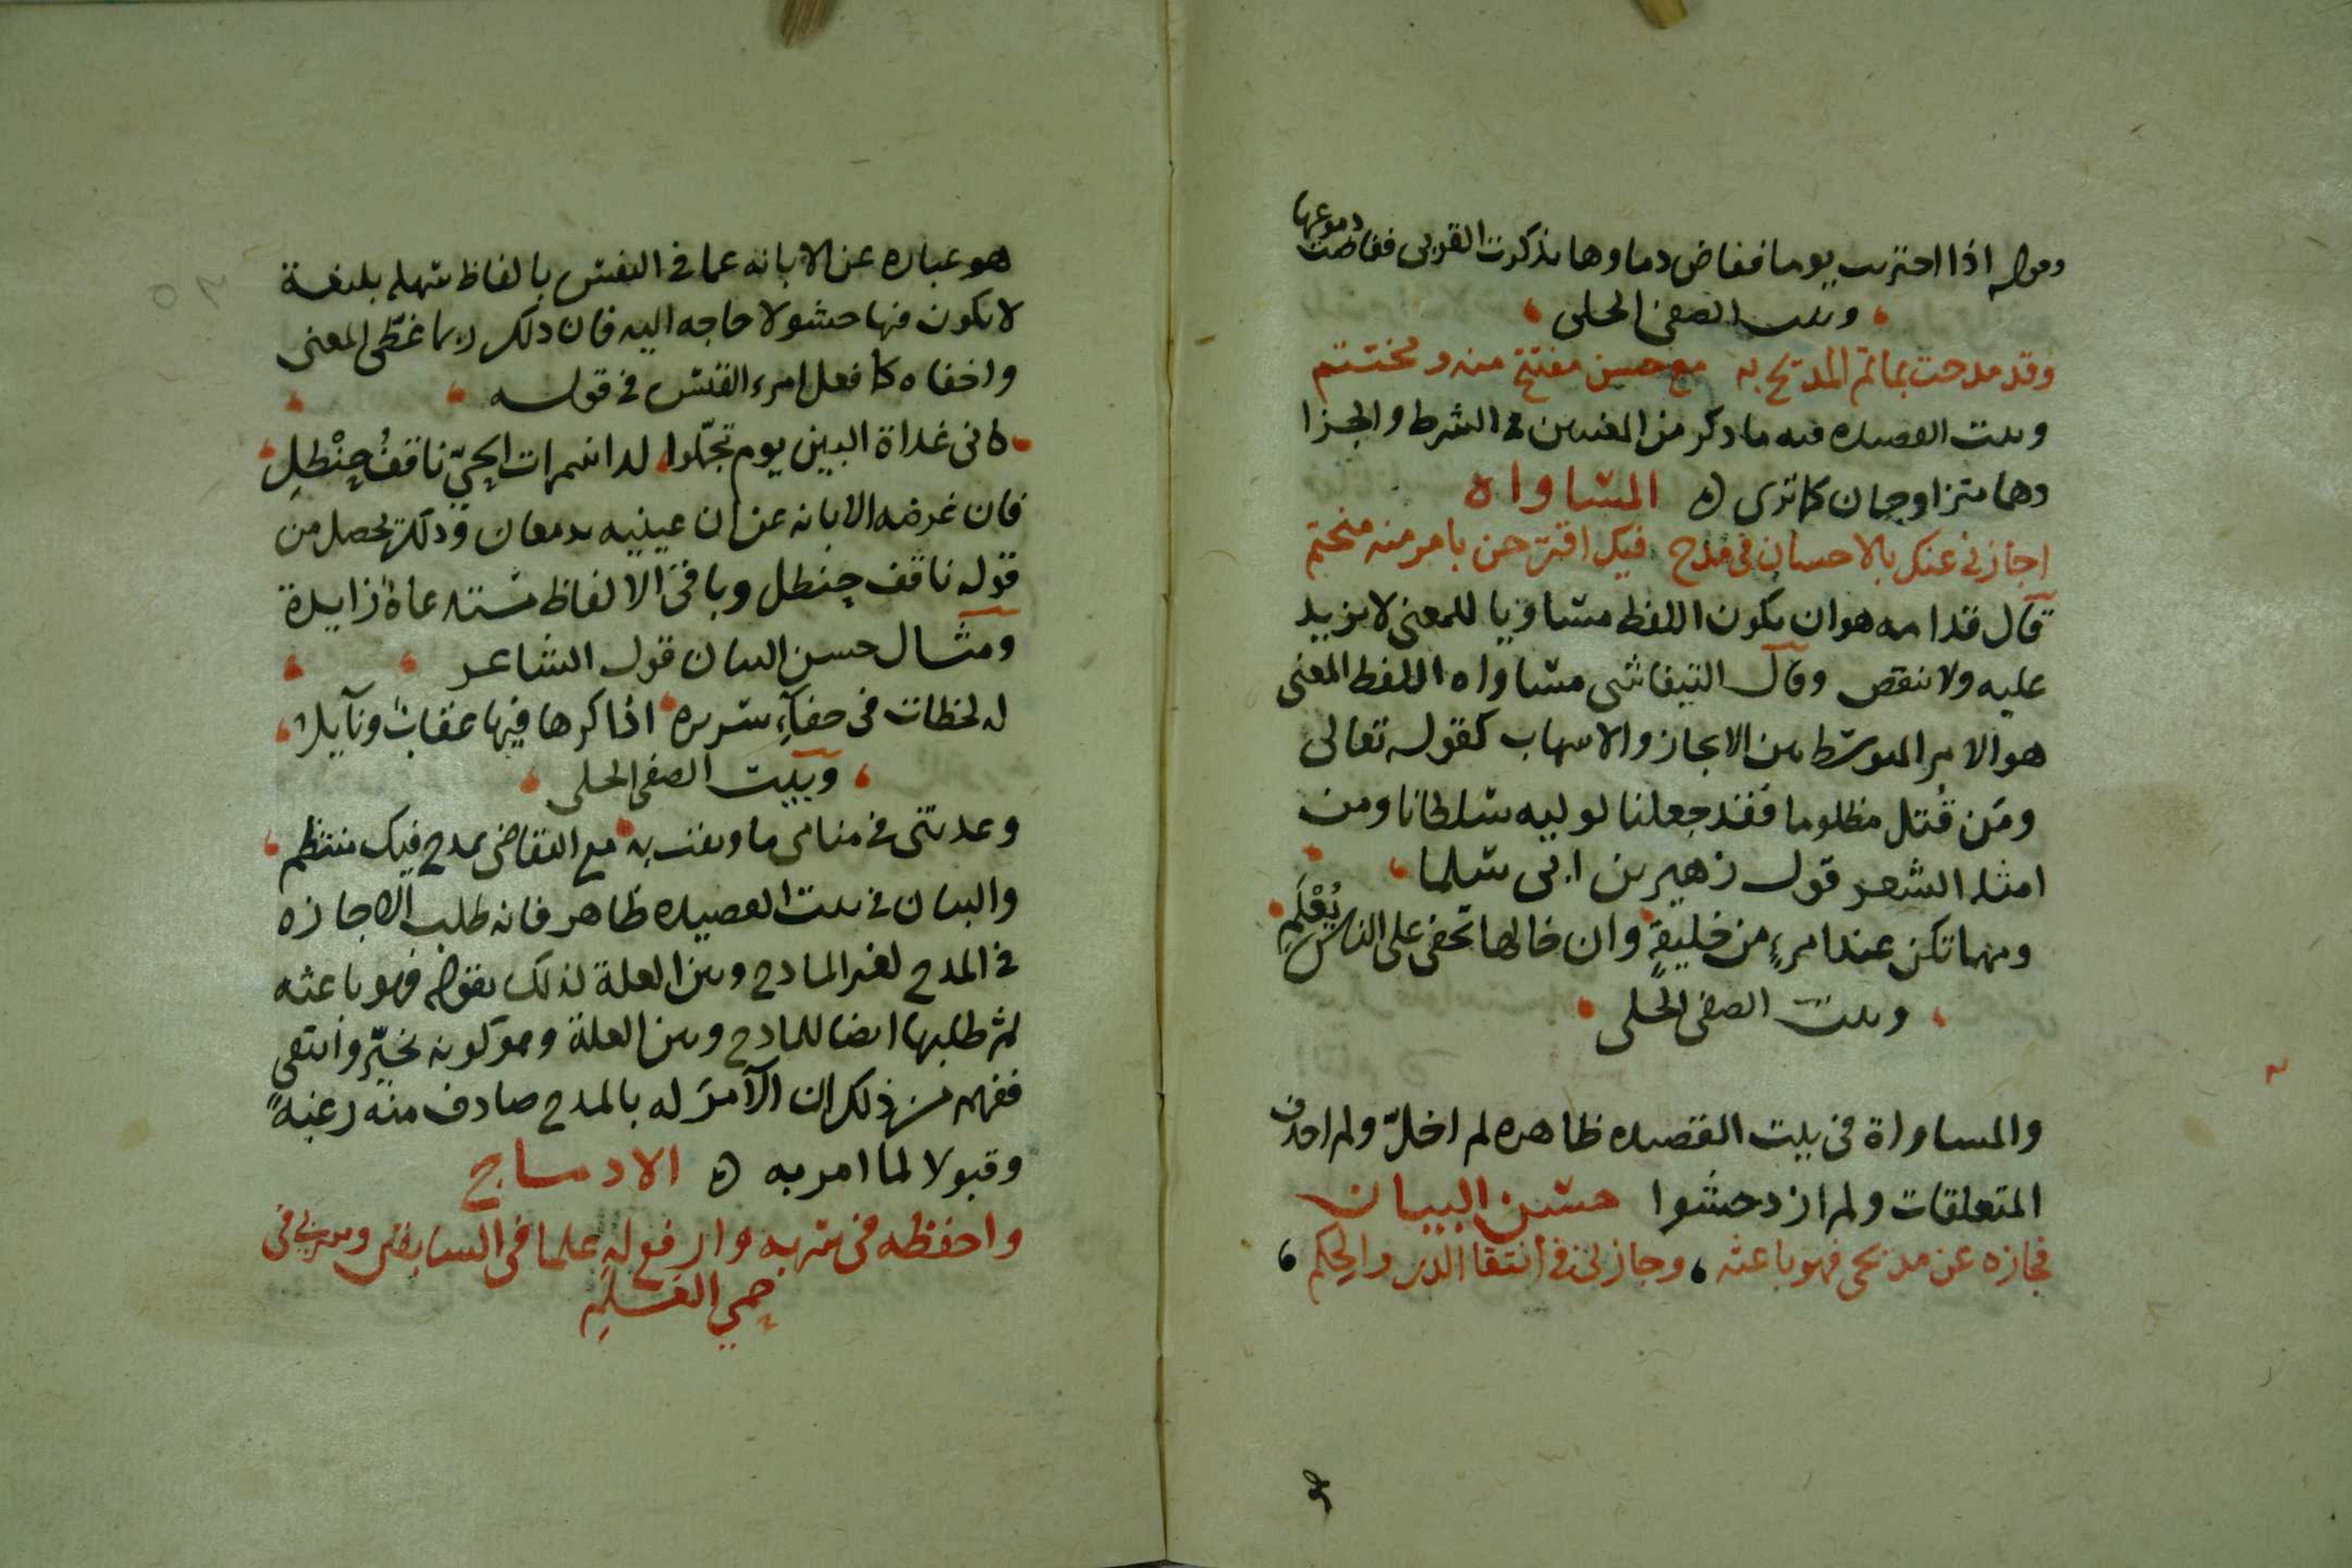 وقوله اذا احتربت يوما ففاض دماوها تذكرت القربى ففاضت دموعها
وبيت الصفي الحلى
وقد مدحت بما تم المديح به مع حسن مفتتح منه ومختتم
وبيت القصيده فيه ما ذكر من المعنيين في الشرط والجزا
وهما متزاوجان كما ترى ه المساواه
اجازني عنك بالاحسان في مدح فيك اقترحن بامر منه منحتم
قال قدامه هو ان يكون اللفظ مساويا للمعنى لا يزيد
عليه ولا ينقص وقال التيفاشى مساواه اللفظ المعنى
هو الامر المتوسط بين الايجاز والاسهاب كقوله تعالى
ومَن قُتل مظلوما فقد جعلنا لوليه سلطانا ومن
امثله الشعر قول زهير بن ابى سلما
ومهما تكن عند امرءٍ من خليقةٍ وان خالها تخفى على الناس يُعْلَمِ
وبيت الصفى الحلى
والمساواة فى بيت القصيده ظاهره لم اخلّ ولم احذف
المتعلقات ولم ازد حشوا حسن البيان
فجازه عن مدحى فهو باعثه وجاز لى في انتقا الدر والحكم
هو عباره عن الابانه عما في النفس بالفاظ سهله بليغة
لا يكون فيها حشو لا حاجه اليه فان ذلك ربما غطّى المعنى
واخفاه كما فعل امرء القيس في قوله
كانى غداة البين يوم تحمّلوا لدا سمرات الحيّ ناقفُ حنْظلِ
فان غرضه الابانه عن ان عينيه تدمعان وذلك يحصل من
قوله ناقف حنظل وباقى الالفاظ مستدعاة زايدة
ومثال حسن البيان قول الشاعر
له لحظات فى حفآءِ سريره اذا كرها فيها عقابٌ ونآيلُ
وبيت الصفي الحلى
وعدتنى في منامى ما وثقت به مع التقاضى بمدح فيك منتظم
والبيان في بيت القصيده ظاهر فانه طلب الاجازه
في المدح لغير المادح وبين العلة لذلك بقوله فهو باعثه
ثم طلبها ايضا للمادح وبين العلة وهو كونه تخيّر وانتقى
ففهم من ذلك ان الآمرَ له بالمدح صادف منه رغبةً
وقبولا لما امر به ه الادماج
واحفظه فى سربه وارفع له علما فى السابقين وسر بى فى
حمي العَلَمِ